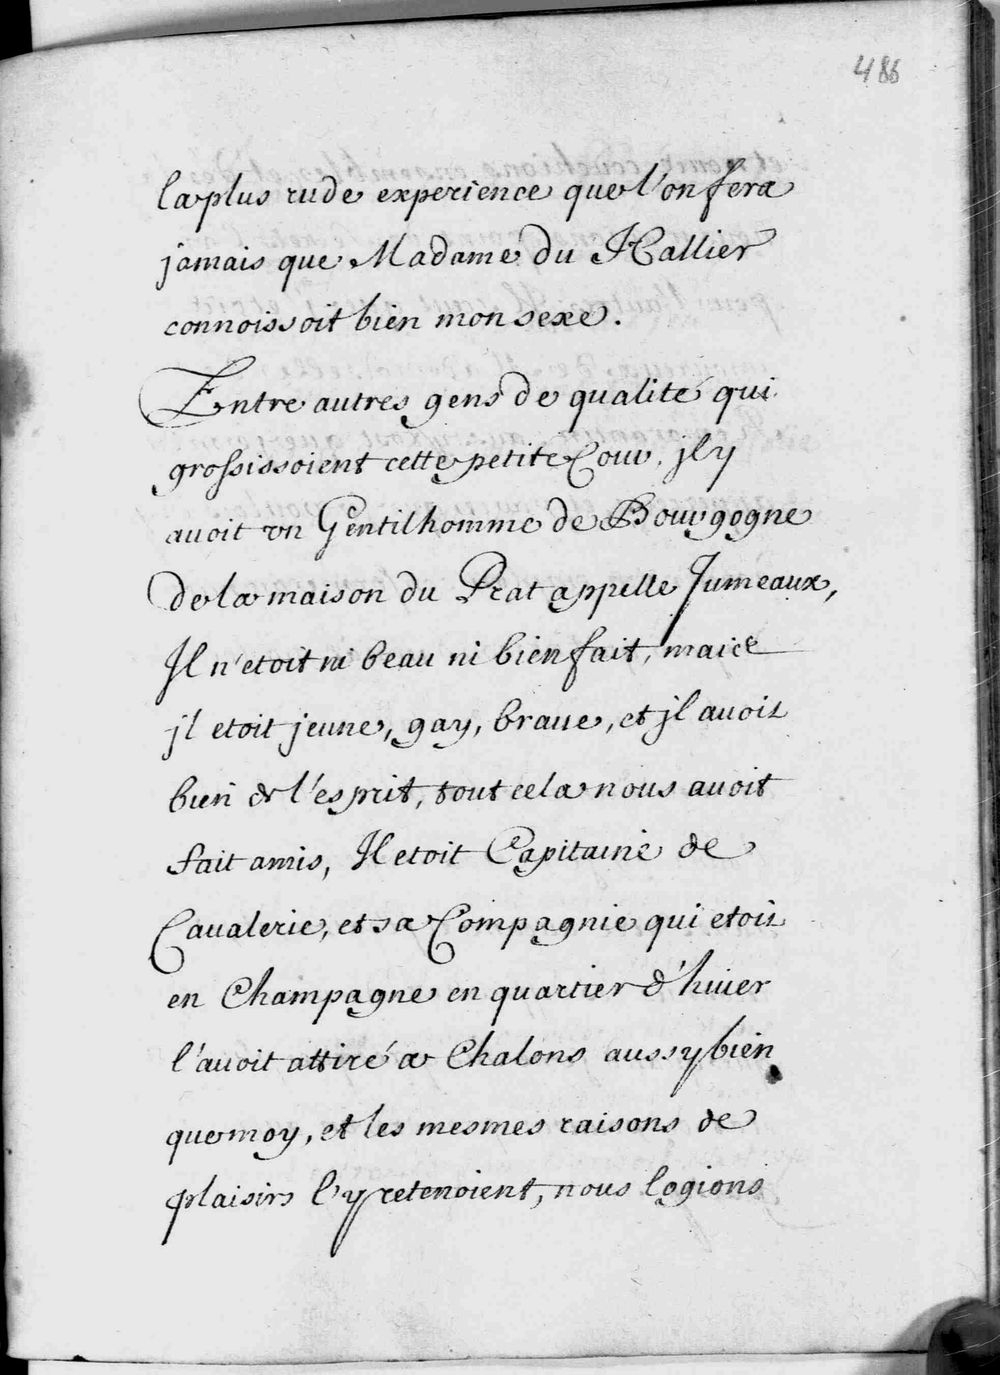 486
la plus rude experience que l'on fera
jamais que Madame du Hallier
connoissoit bien mon sexe.
Entre autres gens de qualité qui
grossissoient cette petite Cour, jl y
avoit vn Gentilhomme de Bourgogne
de la maison du Prat appelle Jumeaux,
Il n'etoit ni beau ni bien fait, mais
jl etoit jeune, gay, braue, et jl auoit
bien de l'esprit, tout cela nous avoit
fait amis, Il etoit Capitaine de
Caualerie, et sa Compagnie qui etoit
en Champagne en quartier d'hiuer
l'auoit attiré a Chalons aussy bien
que moy, et les mesmes raisons de
plaisirs l'y retenoient, nous logions